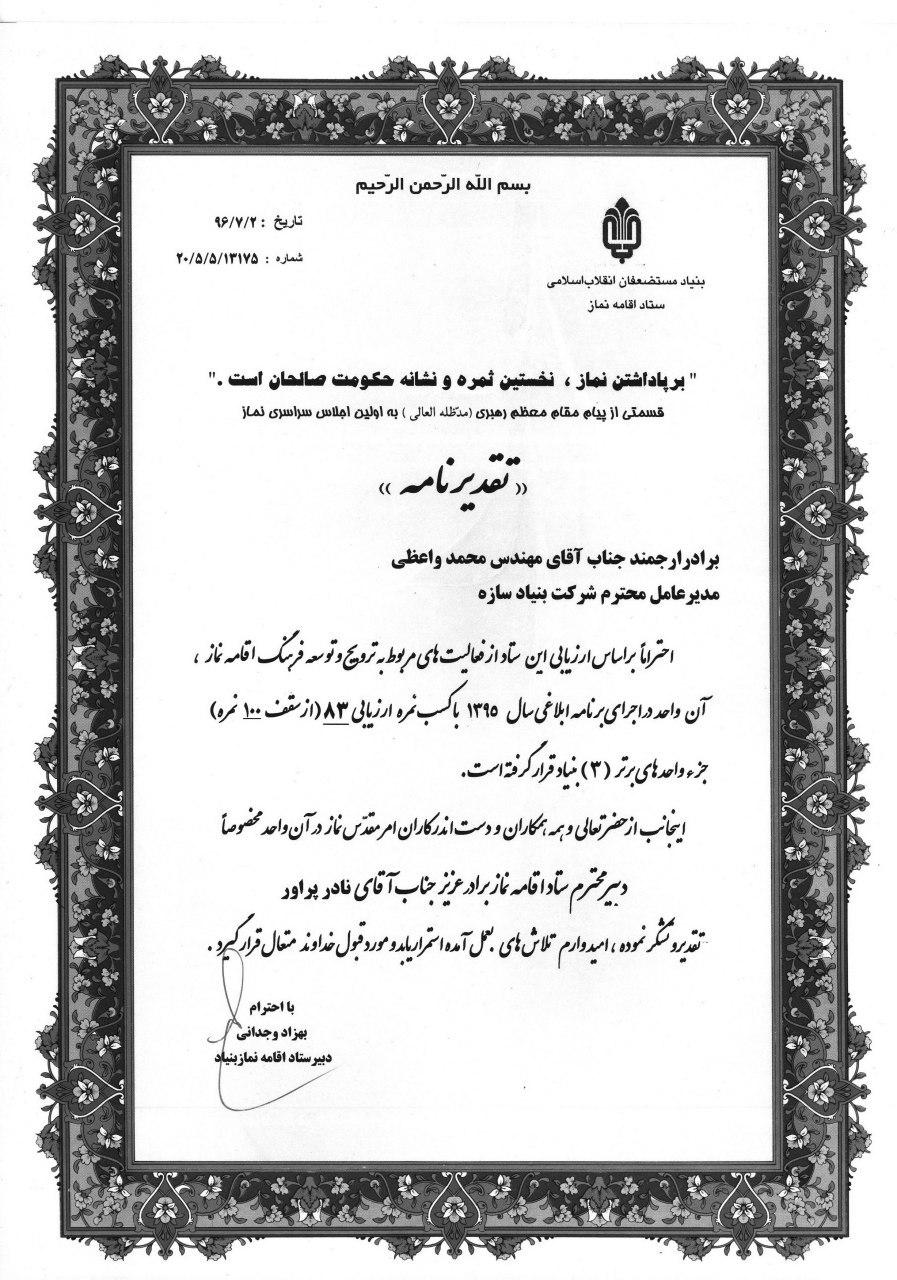 بسم الله الرّحمن الرّحیم
بنیاد مستضعفان انقلاب‌اسلامی
ستاد اقامه نماز
تاریخ : ۹۶/۷/۲
شماره : ۲۰/۵/۵/۱۳۱۷۵
" برپاداشتن نماز ، نخستین ثمره و نشانه حکومت صالحان است . "
قسمتی از پیام مقام معظم رهبری (مدّظله العالی ) به اولین اجلاس سراسری نماز
(( تقدیرنامه ))
برادرارجمند جناب آقای مهندس محمد واعظی
مدیرعامل محترم شرکت بنیاد سازه
احتراماً براساس ارزیابی این ستاد از فعالیت‌های مربوط به ترویج و توسعه فرهنگ اقامه نماز ،
آن واحد در اجرای برنامه ابلاغی سال ۱۳۹۵ با کسب نمره ارزیابی ۸۳ (از سقف ۱۰۰ نمره)
جزء واحدهای برتر (۳) بنیاد قرار گرفته است.
اینجانب از حضرتعالی و همه همکاران و دست اندرکاران امر مقدّس نماز در آن واحد مخصوصاً
دبیر محترم ستاد اقامه نماز برادر عزیز جناب آقای نادر پراور
تقدیر و تشکر نموده ، امیدوارم تلاش‌های بعمل آمده استمرار یابد و مورد قبول خداوند متعال قرار گیرد .
با احترام
بهزاد وجدانی
دبیرستاد اقامه نمازبنیاد